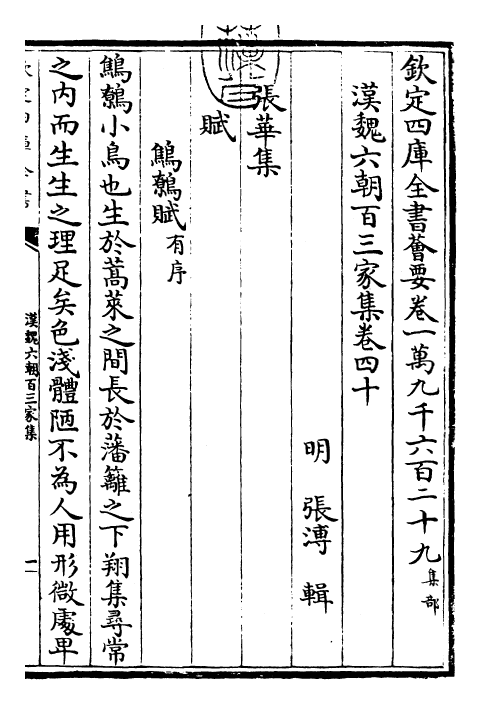 欽定四庫全書薈要卷一萬九千六百二十九集部
漢魏六朝百三家集卷四十
明 張溥 輯
張華集
賦
鷦鷯賦有序
鷦鷯小鳥也生於蒿萊之間長於藩籬之下翔集尋常
之內而生生之理足矣色淺體陋不為人用形微處卑
漢魏六朝百三家集
一